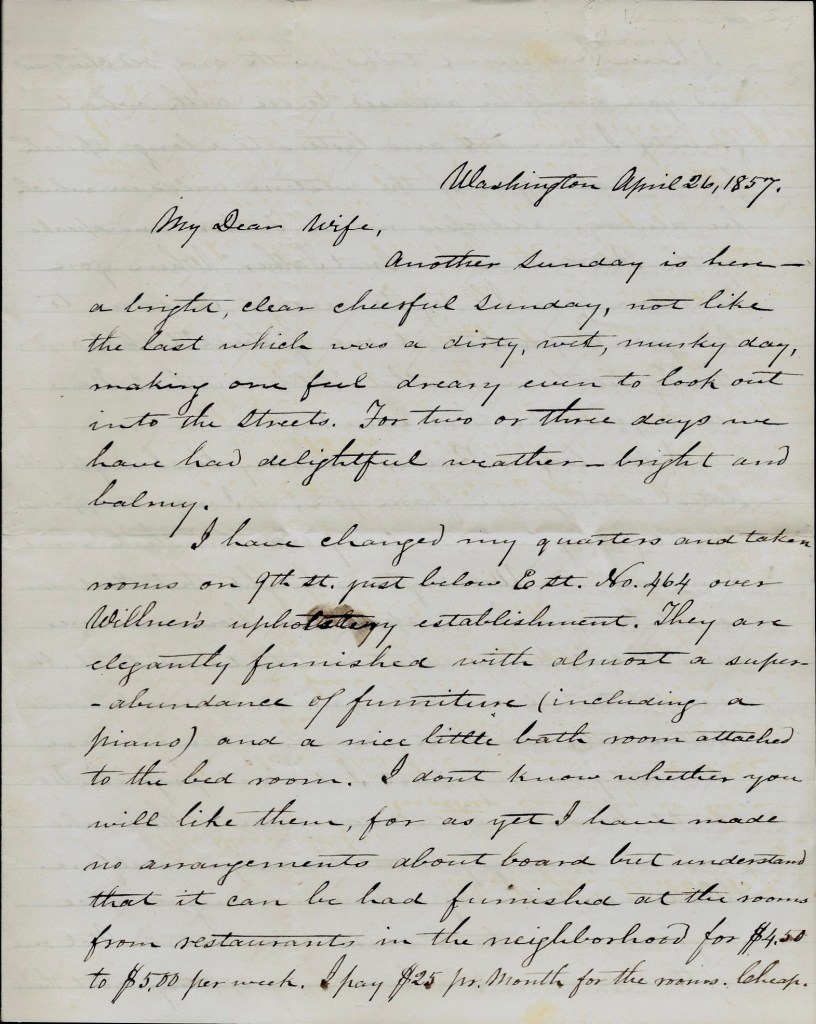 Washington April 26, 1857.
My Dear Wife,
Another Sunday is here—
a bright, clear cheerful Sunday, not like
the last which was a dirty, wet, murky day,
making one feel dreary even to look out
into the streets. For two or three days we
have had delightful weather—bright and
balmy.
I have changed my quarters and taken
rooms on 9th st. just below E st. No. 464 over
Willner's upholstery establishment. They are
elegantly furnished with almost a super-
-abundance of furniture (including a
piano) and a nice little bath room attached
to the bed room. I dont know whether you
will like them, for as yet I have made
no arrangements about board but understand
that it can be had furnished at the rooms
from restaurants in the neighborhood for $4.50
to $5.00 per week. I pay $25 pr. Month for the rooms. Cheap.